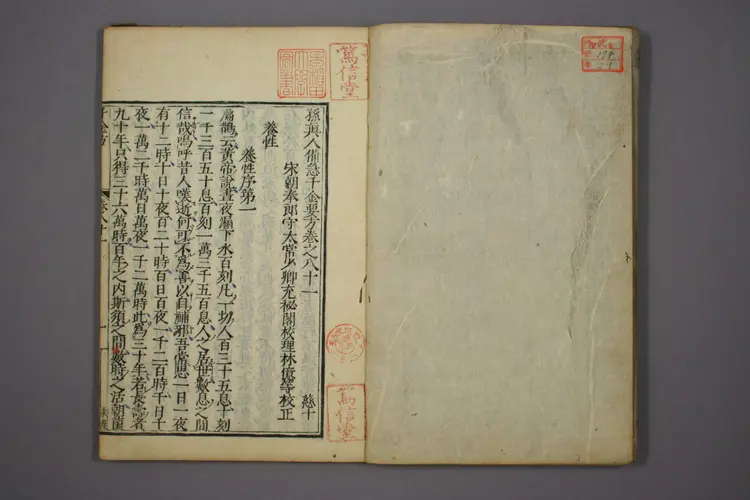 孫真人備急千金要方卷之八十一
慈十
宋朝奉郎守太常少卿充祕閣校理林億等校正
養性
養性序第一
扁鵲云黃帝說晝夜漏下水百刻凡一刻人百三十五息十刻
一千三百五十息百刻一萬三千五百息人之居世數息之間
信哉嗚呼昔人嘆逝何可不為善以自補邪吾常思一日一夜
有十二時十日十夜百二十時百日百夜一千二百時千日千
夜一萬二千時萬日萬夜一十二萬時此為三十年若長壽者
九十年只得三十六萬時百年之內斯須之間數時之活朝菌
千金方
卷八十一
篤信堂
篤信堂
圖書